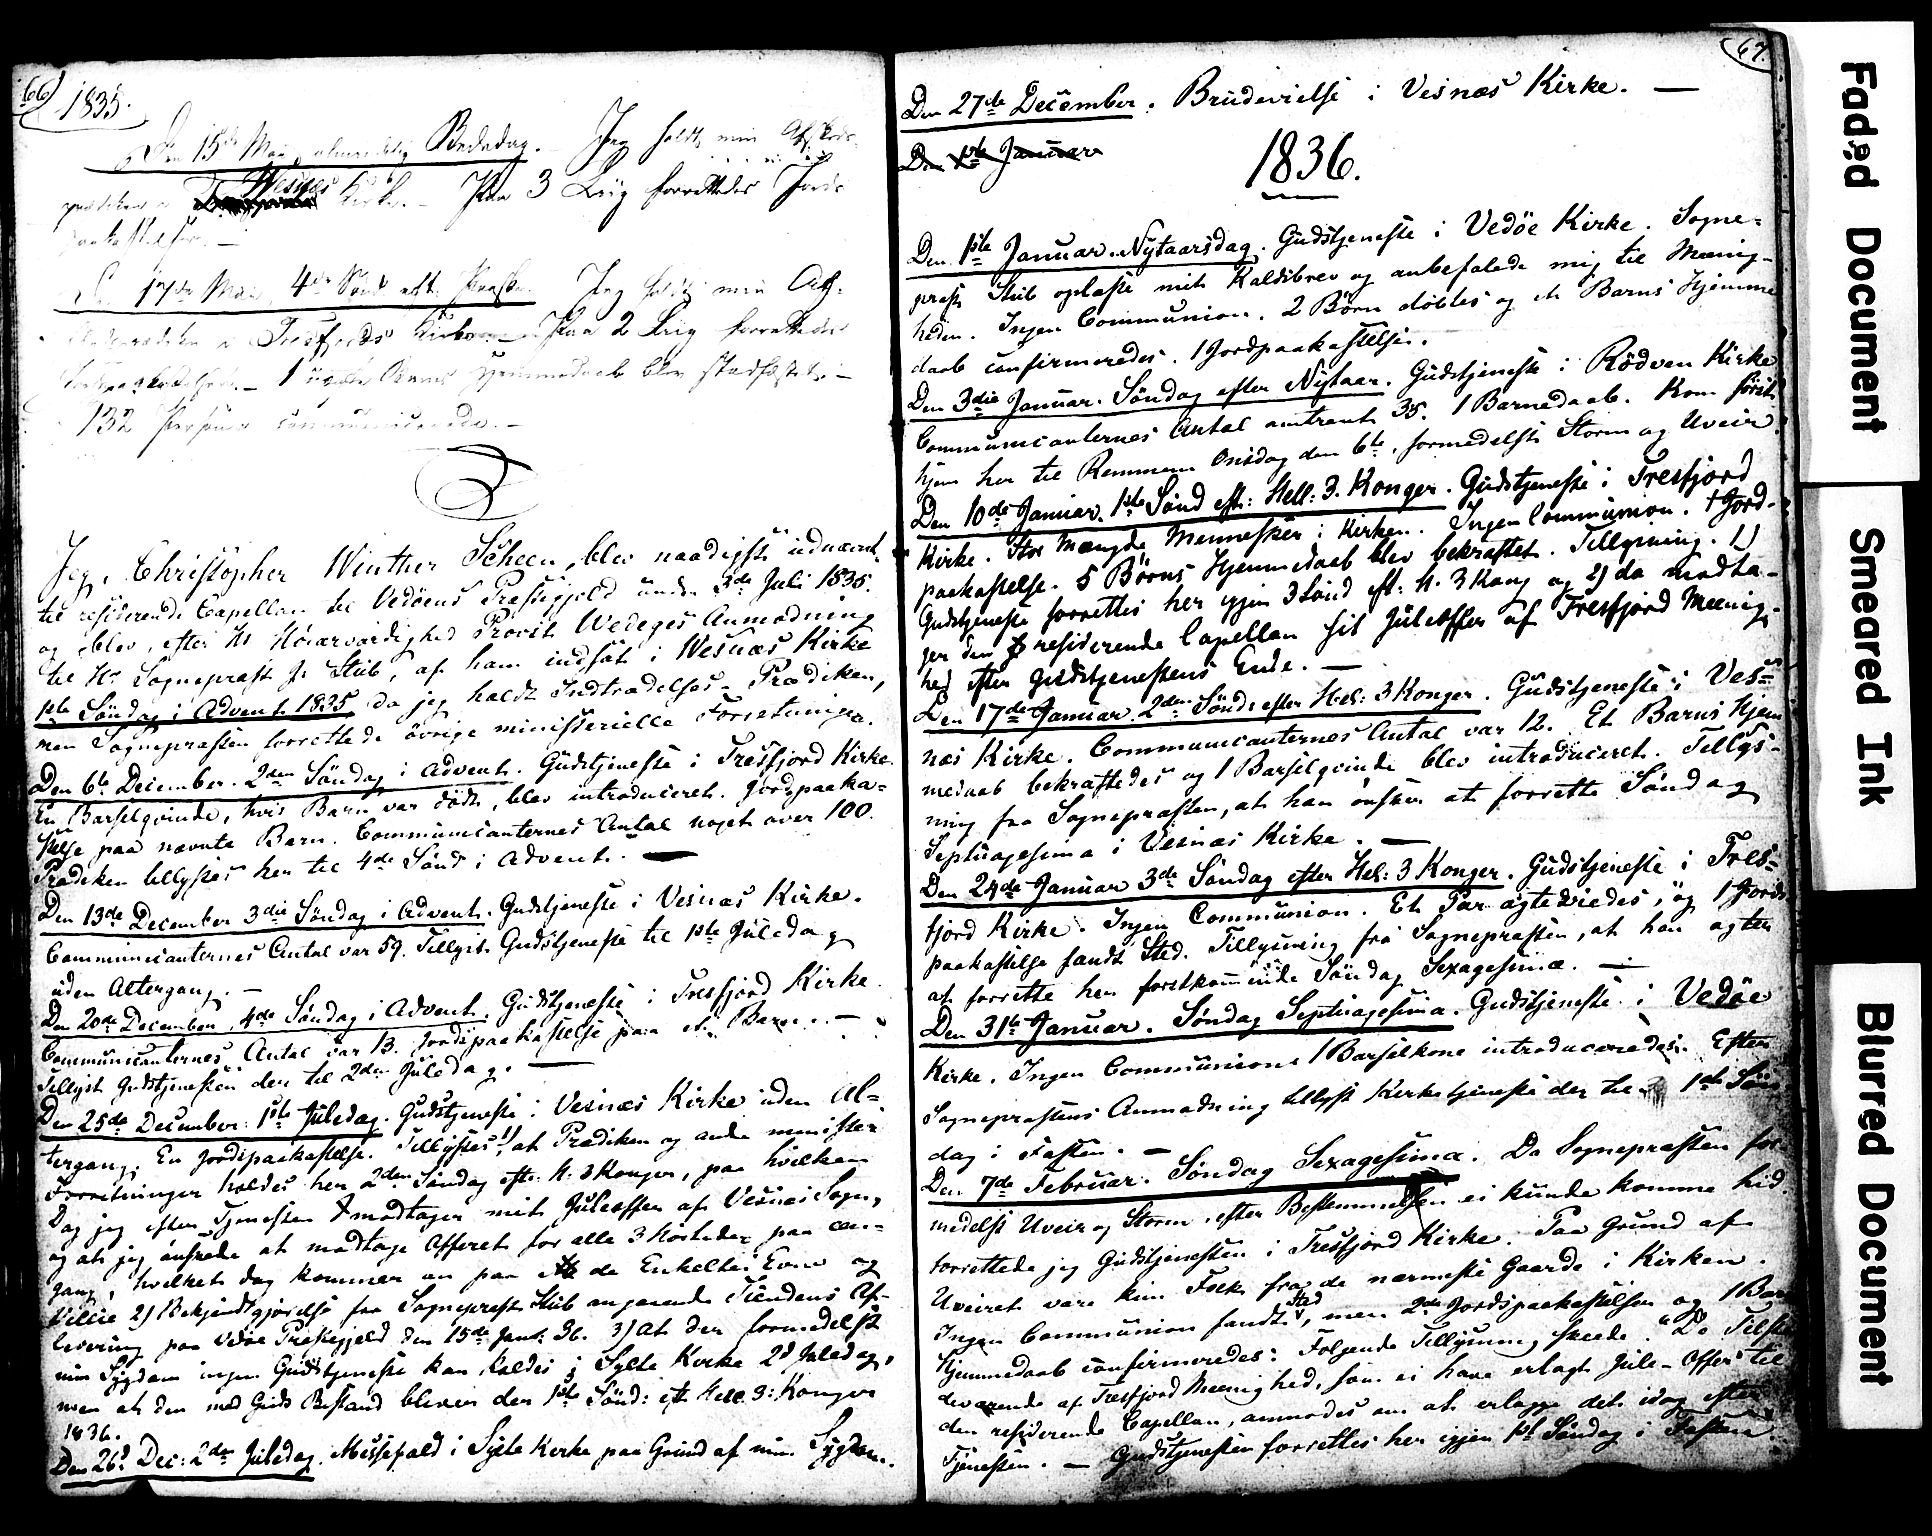 66
1835.
Den 15de Mai, almindelig Bededag. Jeg holdt min Afskeds-
prædiken i Vesnæs Kirke. – Paa 3 Liig forrettedes Jords-
paakastelse. –
Den 17de Mai, 4de Sønd. eft. Paaske. Jeg holdt min Af-
i Tresfjords Kirke – Paa 2 Liig forrettedes
Jordspaakastelse. – 1 Barns Hjemmedaab blev stadfæstet. –
132 Personer communicerede. –
Jeg, Christopher Winther Scheen, blev naadigst udnævnt
til residerende Capellan til Vedøens Præstegjeld under 3de Juli 1835.
og blev, efter Hr Høiærværdighed Provst Wedeges Anmodning
til Hr Sognepræst J. Stub, af ham indsat i Wesnæs Kirke
1ste Søndag i Advent 1835 da jeg holdt Indtrædelses-Prædiken,
men Sognepræsten forrettede øvrige ministerielle Forretninger.
Den 6te December. 2den Søndag i Advent. Gudstjeneste i Tresfjord Kirke.
En Barselqvinde, hvis Barn var dødt, blev introduceret. Jordspaaka-
stelse paa nævnte Barn. Communicanternes Antal noget over 100.
Prædiken tillystes her til 4de Sønd i Advent. —
Den 13de December 3die Søndag i Advent. Gudstjeneste i Vesnæs Kirke.
Communicanternes Antal var 59. Tillyst Gudstjeneste til 1ste Juledag
uden Altergang. –
Den 20de December, 4de Søndag i Advent. Gudstjeneste i Tresfjord Kirke.
Communicanternes Antal var 13. Jordspaakastelse paa et Barn. –
Tillyst Gudstjenesten der til 2den Juledag. —
Den 25de December: 1ste Juledag. Gudstjeneste i Vesnæs Kirke uden Al-
tergang. En Jordspaakastelse. Tillystes 1) at Prædiken og andre minister
Forretninger holdes her 2den Søndag eft. H. 3 Konger, paa hvilken
Dag jeg efter Tjenesten modtager mit Juleoffer af Vesnæs Sogn,
og at jeg ønskede at modtage Offeret for alle 3 Høitider paa een-
gang, hvilket dog kommer an paa de Enkeltes Evne og
Villie 2) Bekjendtgjørelse fra Sognepræst Stub angaaende Tiendens Af-
levering paa Vedøe Præstegjeld den 15de Janr: 36. 3) At der formedelst
min Sygdom ingen Gudstjeneste kan holdes i Sylte Kirke 2d Juledag,
men at den med Guds Bistand bliver der 1ste Sønd: eft Hell 3: Konger
1836.
Den 26d Dec: 2den Juledag. Messefald i Sylte Kirke paa Grund af min Sygdom.
67.
Den 27de December. Brudevielse i Vesnæs Kirke. —
Den 1ste Januar
1836.
Den 1ste Januar. Nytaarsdag. Gudstjeneste i Vedøe Kirke. Sogne-
præst Stub oplæste mit Kaldsbrev og anbefalede mig til Mænig-
heden. Ingen Communion. 2 Børn døbtes og et Barns Hjemme
daab confirmeredes. 1 Jordpaakastelse.
Den 3die Januar. Søndag efter Nytaar. Gudstjeneste i Rødven Kirke
Communicanternes Antal omtrent 35. 1 Barnedaab. Kom først
hjem her til Remmem Onsdag den 6te, formedelst Storm og Uveir
Den 10de Januar. 1ste Sønd eft: Hell: 3. Konger. Gudstjeneste i Tresfjord
Kirke. Stor Mængde Mennesker i Kirken. Ingen Communion. 1 Jord-
paakastelse. 5 Børns Hjemmedaab blev bekræftet. Tillysning. 1)
Gudstjeneste forrettes her igjen 3 Sønd eft: H. 3 Kong og 2) da modta-
ger den residerende Capellan sit Juleoffer af Tresfjord Meenig-
hed efter Gudstjenestens Ende. —
Den 17de Januar 2den Sønd: efter Hel: 3 Konger. Gudstjeneste i Ves-
næs Kirke. Communicanternes Antal var 12. Et Barns Hjem
medaab bekræftedes og 1 Barselqvinde blev introduceret. Tillys-
ning fra Sognepræsten, at han ønsker at forrette Søndag
Septuagesima i Vesnæs Kirke. —
Den 24de Januar 3de Søndag efter Hel: 3 Konger. Gudstjeneste i Tres-
fjord Kirke. Ingen Communion. Et Par ægteviedes, og 1 Jords
paakastelse fandt Sted. Tillysning fra Sognepræsten, at han agter
at forrette her førstkommende Søndag Sexagesima. —
Den 31te Januar. Søndag Septuagesima. Gudstjeneste i Vedøe
Kirke. Ingen Communion. 1 Barselkone introduceredes. Efter
Sognepræstens Anmodning tillyst Kirketjeneste der til 1ste Søn
dag i Fasten. —
Den 7de Februar. Søndag Sexagesima. Da Sognepræsten for
medelst Uveir og Storm, efter Bestemmelsen ei kunde komme hid
forrettede jeg Gudstjenesten i Tresfjord Kirke. Paa Grund af
Uveiret vare kun Folk fra de nærmeste Gaarde i Kirken.
Ingen Communion fandt Sted, men 2de Jordspaakastelser og 1 Barns
Hjemmedaab confirmeredes: Følgende Tillysning skeede. "De Tilste
deværende af Tresfjord Meenighed, som ei have erlagt Jule-Offer til
den residerende Capellan, anmodes om at erlægge det idag efter
Tjenesten. – Gudstjenesten forrettes her igjen 1st Søndag i Fasten
Faded Document
Smeared Ink
Blurred Document